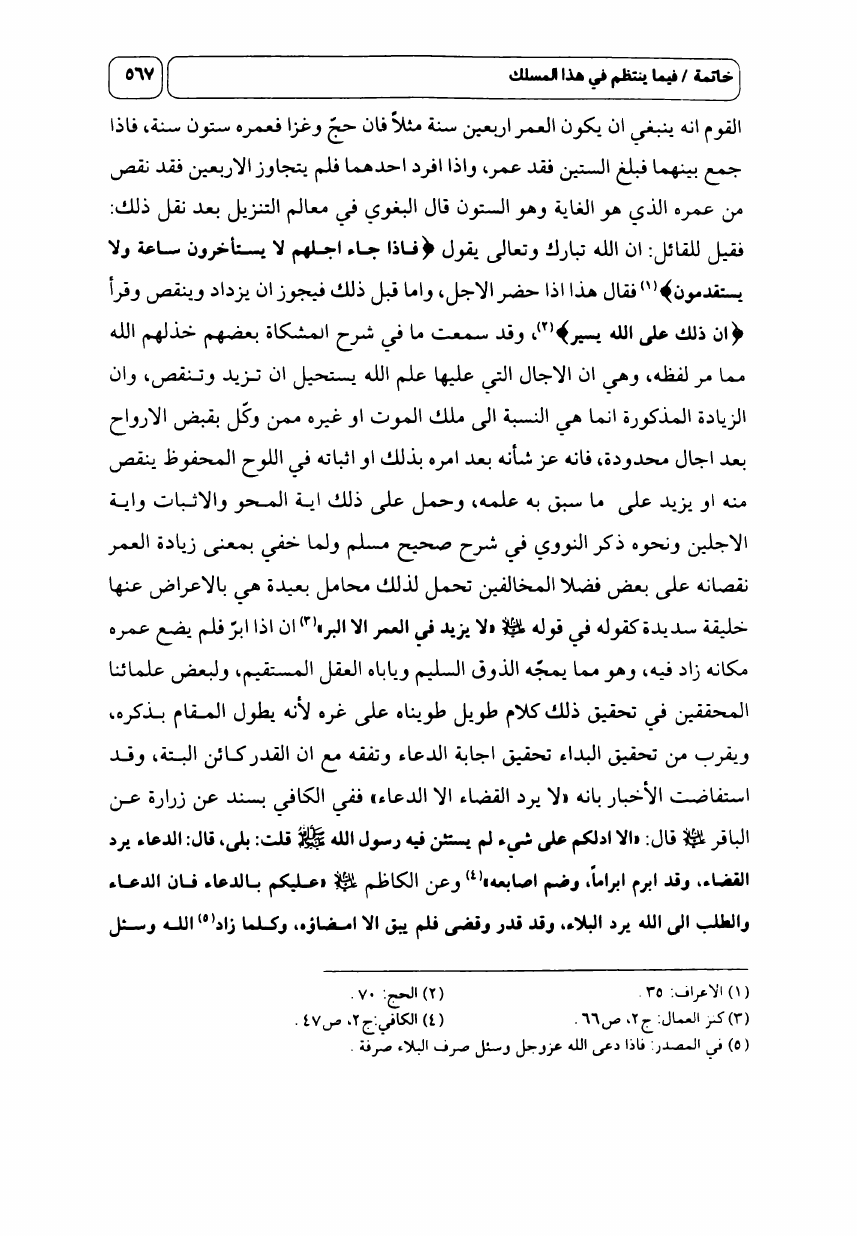 خاتمة / فيما ينتظم في هذا المسلك ٥٦٧
القوم انه ينبغي ان يكون العمر اربعين سنة مثلاً فان حجّ وغزا فعمره ستون سنة، فاذا
جمع بينهما فبلغ الستين فقد عمر، واذا افرد احدهما فلم يتجاوز الاربعين فقد نقص
من عمره الذي هو الغاية وهو الستون قال البغوي في معالم التنزيل بعد نقل ذلك:
فقيل للقائل: ان الله تبارك وتعالى يقول ﴿فـاذا جـاء اجـلهم لا يسـتأخرون سـاعة ولا
يستقدمون﴾(١) فقال هذا اذا حضر الاجل، واما قبل ذلك فيجوز ان يزداد وينقص وقرأ
﴿ان ذلك على الله يسير﴾(٢)، وقد سمعت ما في شرح المشكاة بعضهم خذلهم الله
مما مر لفظه، وهي ان الاجال التي عليها علم الله يستحيل ان تـزيد وتـنقص، وان
الزيادة المذكورة انما هي النسبة الى ملك الموت او غيره ممن وكّل بقبض الارواح
بعد اجال محدودة، فانه عز شأنه بعد امره بذلك او اثباته في اللوح المحفوظ ينقص
منه او يزيد على ما سبق به علمه، وحمل على ذلك اية المـحو والاثـبات وايـة
الاجلين ونحوه ذكر النووي في شرح صحيح مسلم ولما خفي بمعنى زيادة العمر
نقصانه على بعض فضلا المخالفين تحمل لذلك محامل بعيدة هي بالاعراض عنها
خليقة سديدة كقوله في قوله ﷺ «لا يزيد في العمر الا البر»(٣) ان اذا ابرّ فلم يضع عمره
مكانه زاد فيه، وهو مما يمجّه الذوق السليم وياباه العقل المستقيم، ولبعض علمائنا
المحققين في تحقيق ذلك كلام طويل طويناه على غره لأنه يطول المـقام بـذكره،
ويقرب من تحقيق البداء تحقيق اجابة الدعاء وتفقه مع ان القدر كـائن البـتة، وقـد
استفاضت الأخبار بانه «لا يرد القضاء الا الدعاء» ففي الكافي بسند عن زرارة عـن
الباقر ﵇ قال: «الا ادلكم على شيء لم يستثن فيه رسول الله ﷺ قلت: بلى، قال: الدعاء يرد
القضاء، وقد ابرم ابراماً، وضم اصابعه»(٤) وعن الكاظم ﵇ «عـليكم بـالدعاء فـان الدعـاء
والطلب الى الله يرد البلاء، وقد قدر وقضى فلم يبق الا امـضاؤه، وكـلما زاد(٥) اللـه وسـئل
(١) الاعراف: ٣٥. (٢) الحج: ٧٠.
(٣) كنز العمال: ج٢، ص٦٦. (٤) الكافي: ج٢، ص٤٧.
(٥) في المصدر: فاذا دعى الله عزوجل وسئل صرف البلاء صرفة.